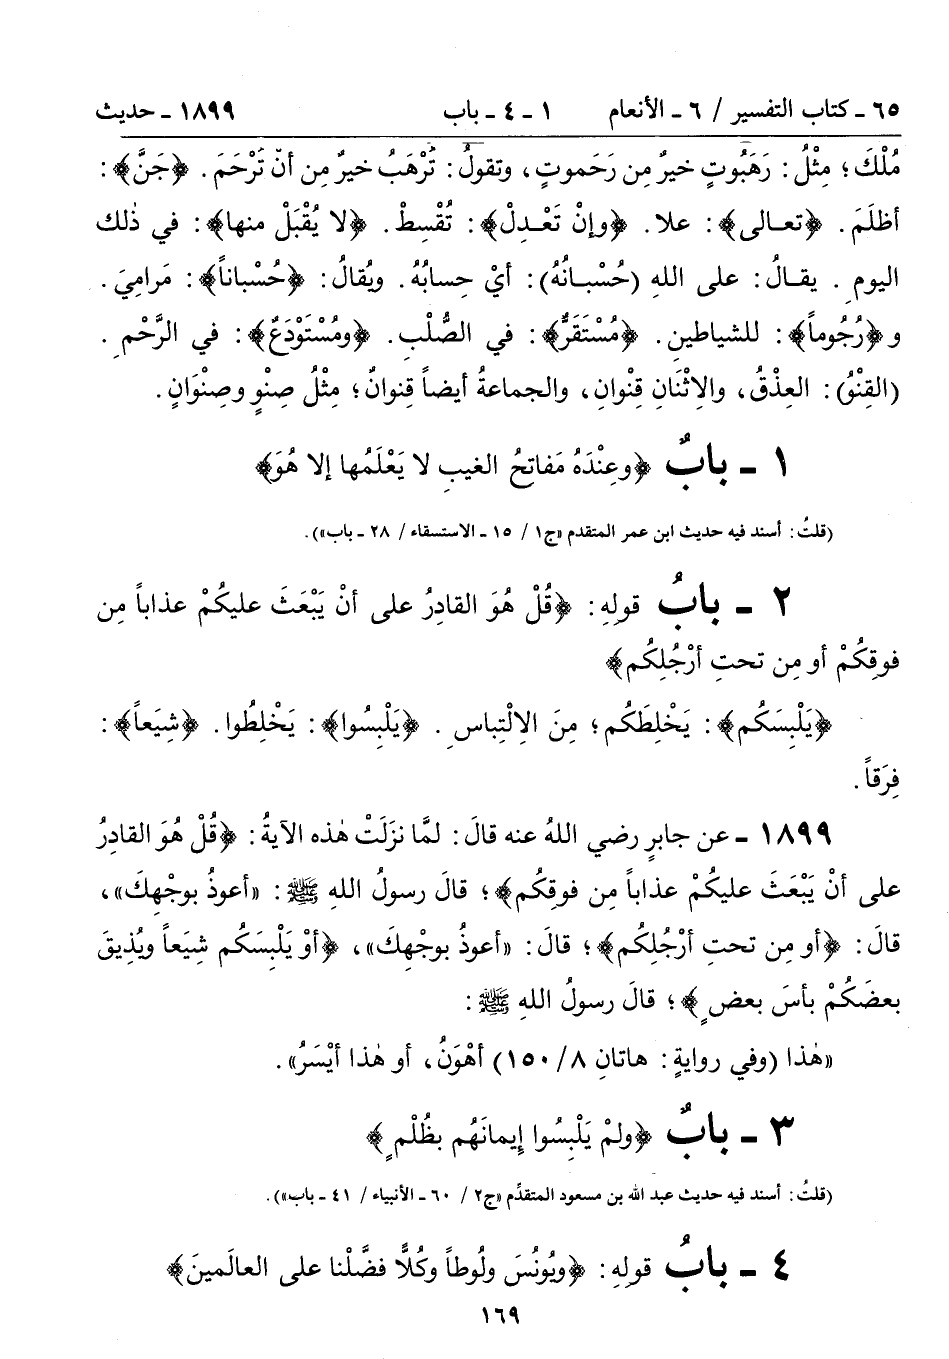 ٦٥ ـ كتاب التفسير / ٦ ـ الأنعام ١ ـ ٤ ـ باب ١٨٩٩ ـ حديث
مُلْكَ؛ مِثْلُ: رَهَبُوتٍ خيرٌ مِن رَحَموتٍ، وتقولُ: تُرْهَبُ خيرٌ مِن أنْ تُرْحَمَ. ﴿جَنَّ﴾:
أظلَمَ. ﴿تعالى﴾: علا. ﴿وإنْ تَعْدِلْ﴾: تُقْسِطْ. ﴿لا يُقْبَلْ منها﴾: في ذٰلك
اليومِ. يقالُ: على اللهِ (حُسْبانُهُ): أيْ حِسابُهُ. ويُقالُ: ﴿حُسْباناً﴾: مَرامِيَ.
و﴿رُجُوماً﴾: للشياطينِ. ﴿مُسْتَقَرٌّ﴾: في الصُّلْبِ. ﴿ومُسْتَوْدَعٌ﴾: في الرَّحْمِ.
(القِنْوُ): العِذْقُ، والاِثْنَانِ قِنْوانِ، والجماعةُ أيضاً قِنوانٌ؛ مِثْلُ صِنْوٍ وصِنْوَانٍ.
١ ـ بابٌ ﴿وعِنْدَهُ مَفاتحُ الغيبِ لا يَعْلَمُها إلا هُوَ﴾
(قلتُ: أسند فيه حديث ابن عمر المتقدم «ج١ / ١٥ ـ الاستسقاء / ٢٨ ـ باب»).
٢ ـ بابُ قولِهِ: ﴿قُلْ هُوَ القادِرُ على أنْ يَبْعَثَ عليكُمْ عذاباً مِن
فوقِكُمْ أو مِن تحتِ أرْجُلِكُم﴾
﴿يَلْبِسَكُم﴾: يَخْلِطَكُم؛ مِنَ الاِلْتِباسِ. ﴿يَلْبِسُوا﴾: يَخْلِطُوا. ﴿شِيَعاً﴾:
فِرَقاً.
١٨٩٩ ـ عن جابرٍ رضي اللهُ عنه قالَ: لمَّا نزَلَتْ هٰذه الآيةُ: ﴿قُلْ هُوَ القادِرُ
على أنْ يَبْعَثَ عليكُمْ عذاباً مِن فوقِكُم﴾؛ قالَ رسولُ اللهِ ﷺ: «أعوذُ بوجْهِكَ»،
قالَ: ﴿أو مِن تحتِ أرْجُلِكُم﴾؛ قالَ: «أعوذُ بوجْهِكَ»، ﴿أوْ يَلْبِسَكُم شِيَعاً ويُذِيقَ
بعضَكُمْ بأسَ بعضٍ﴾؛ قالَ رسولُ اللهِ ﷺ:
«هٰذا (وفي روايةٍ: هاتانِ ٨/ ١٥٠) أهْوَنُ، أو هٰذا أيْسَرُ».
٣ ـ بابٌ ﴿ولمْ يَلْبِسُوا إيمانَهُم بظُلْمٍ﴾
(قلتُ: أسند فيه حديث عبد الله بن مسعود المتقدِّم «ج٢ / ٦٠ ـ الأنبياء / ٤١ ـ باب»).
٤ ـ بابُ قولِهِ: ﴿ويُونُسَ ولُوطاً وكُلًّا فضَّلْنا على العالَمينَ﴾
١٦٩